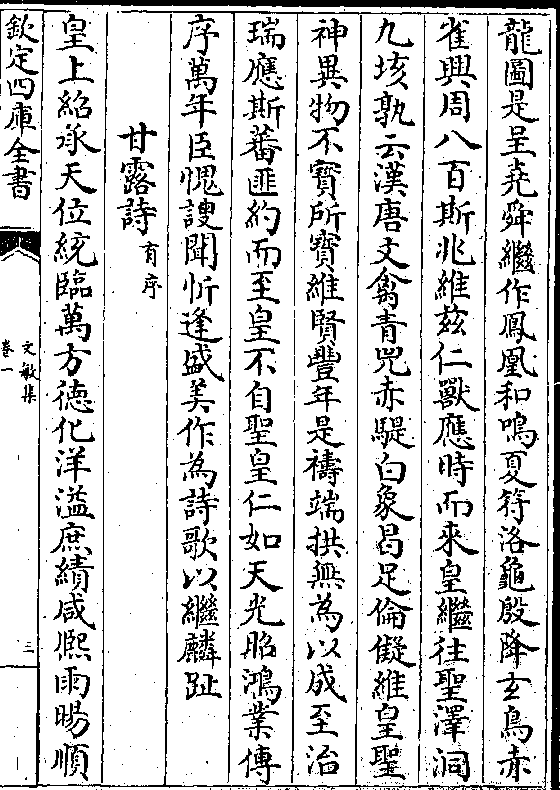 龍圖是呈堯舜繼作鳳凰和鳴夏符洛龜殷降玄鳥赤
雀興周八百斯兆維茲仁獸應時而來皇繼往聖澤洞
九垓孰云漢唐文禽青兕赤騠白象曷足倫儗維皇聖
神異物不寶所寶維賢豐年是禱端拱無為以成至治
瑞應斯蕃匪約而至皇不自聖皇仁如天光昭鴻業傳
序萬年臣愧謏聞忻逢盛美作為詩歌以繼麟趾
甘露詩有序
皇上紹承天位統臨萬方德化洋溢庶績咸熈雨暘順
欽定四庫全書
文敏集
卷一
三